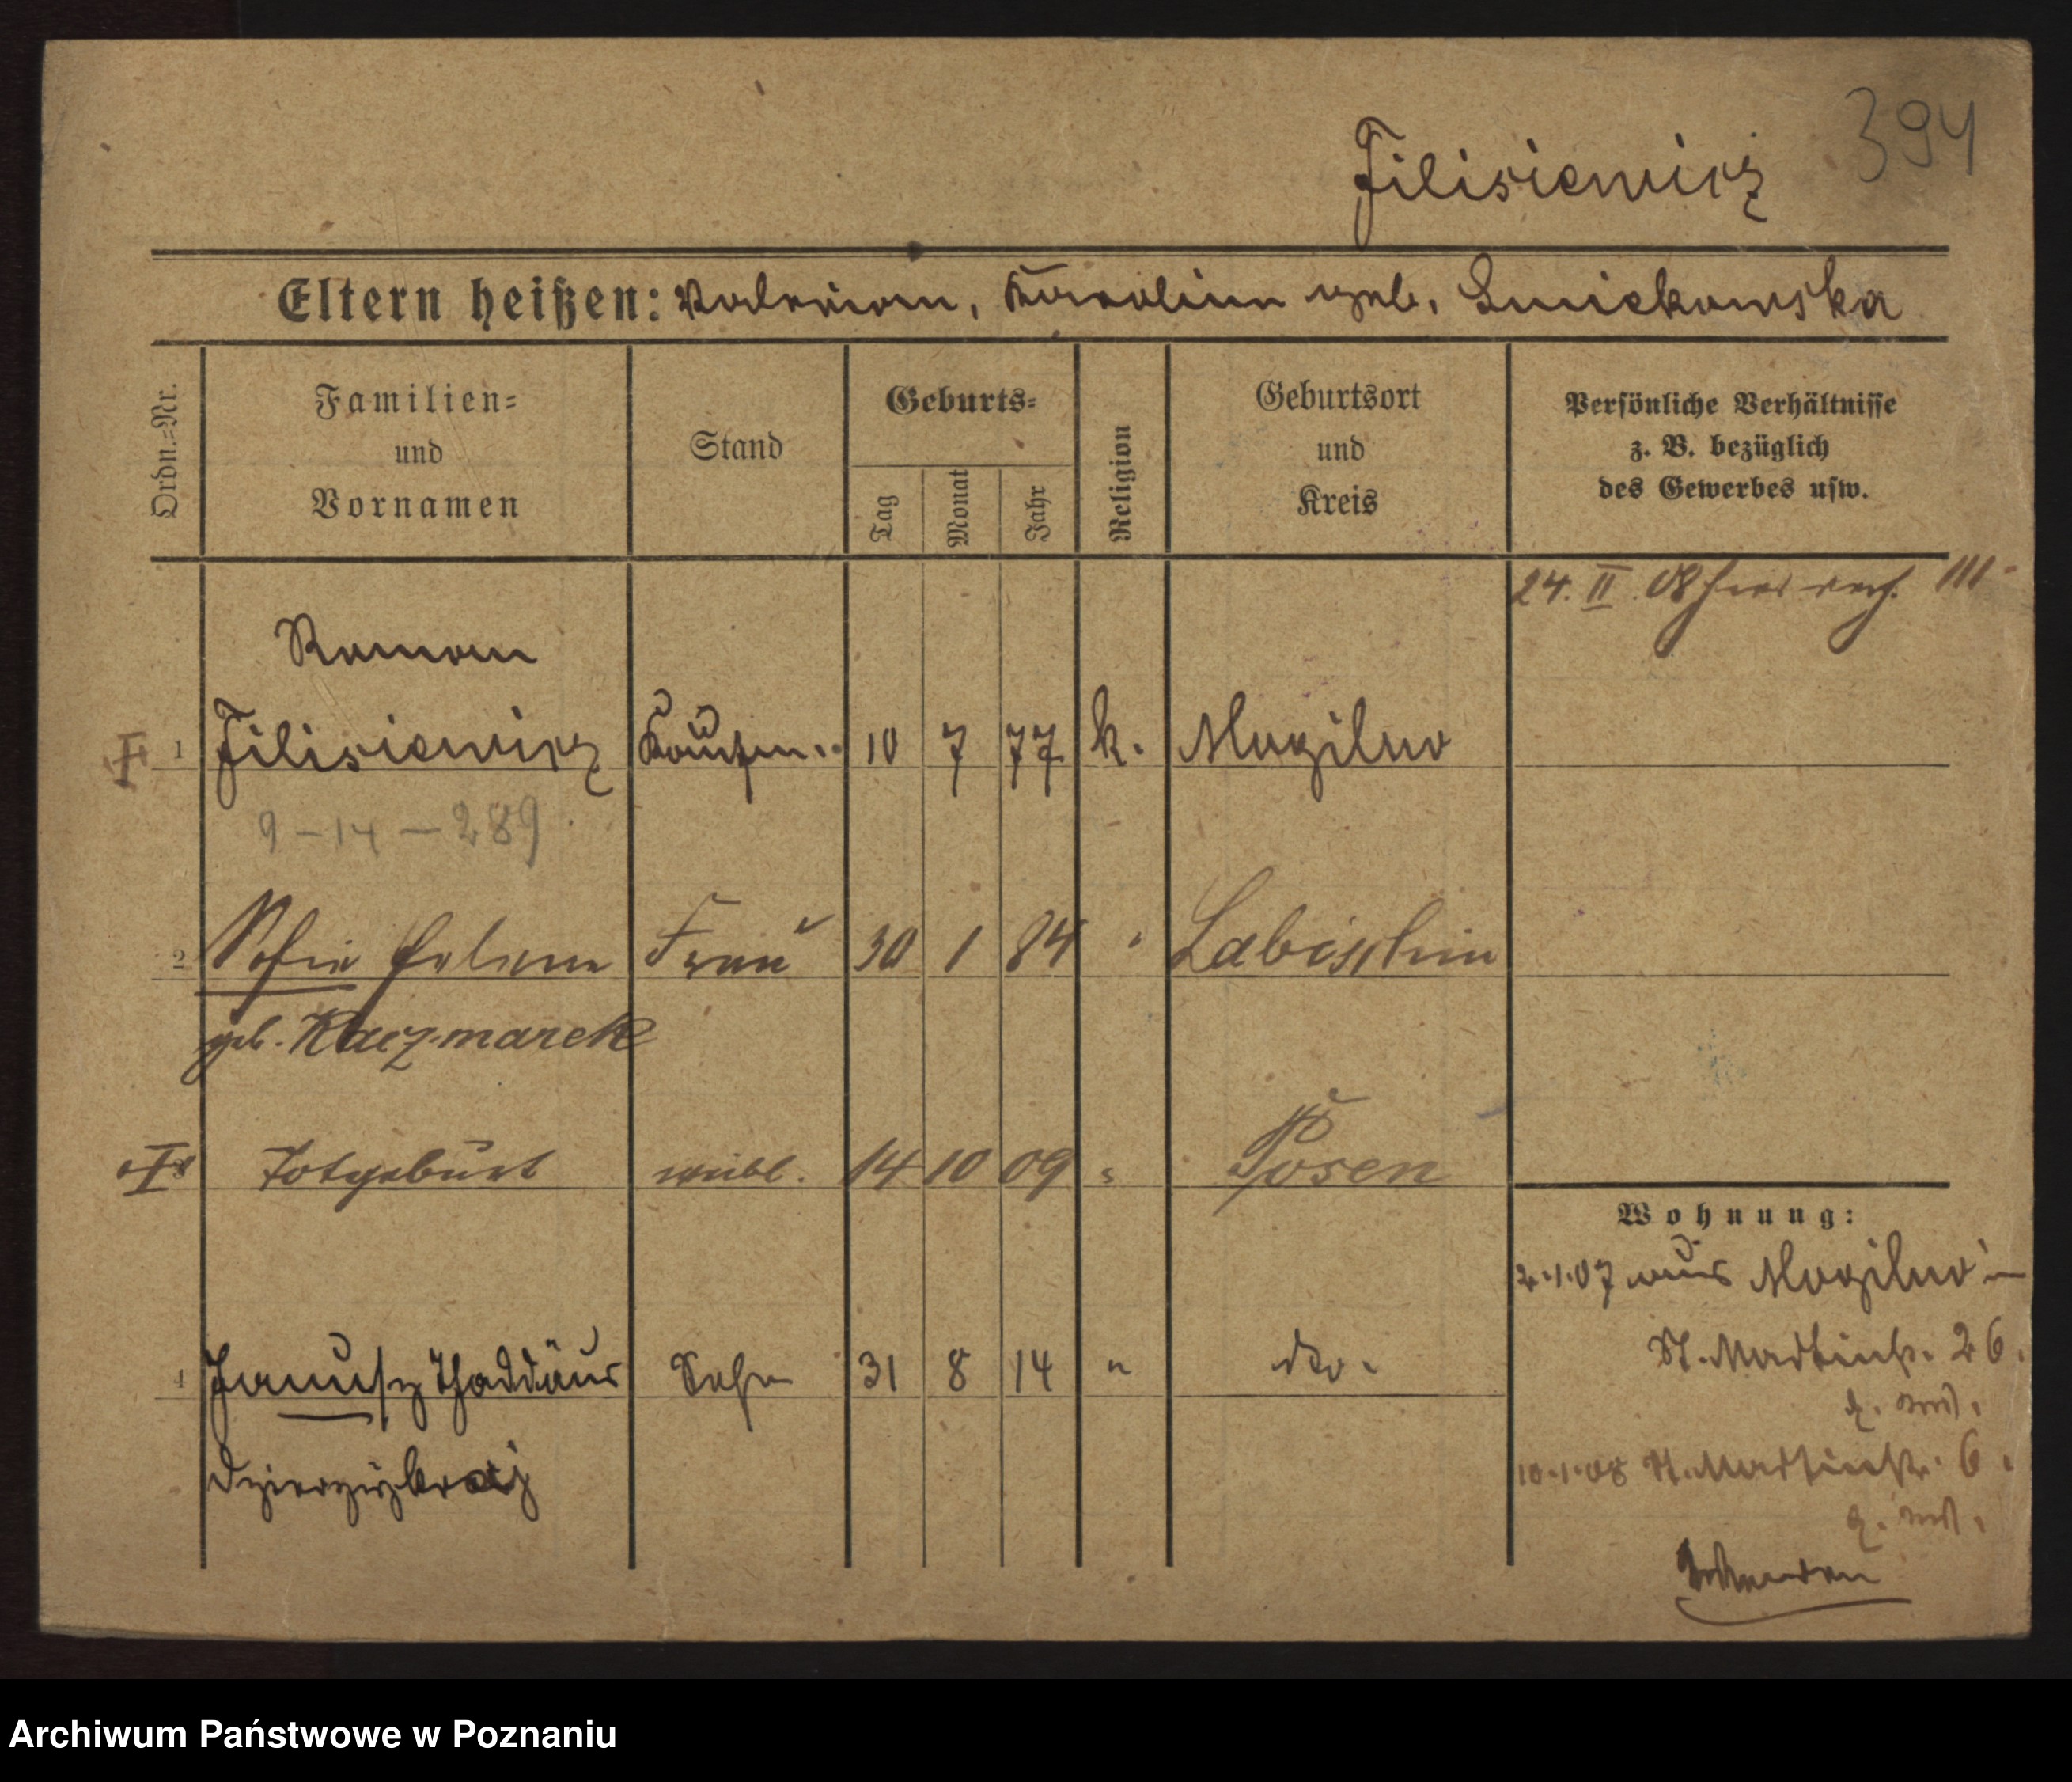 394
Filisiewicz
Eltern heißen: Valerian, Karoline geb. Smiekowska
Ordn.=Nr.
Familien=
und
Vornamen
Stand
Geburts=
Tag
Monat
Jahr
Religion
Geburtsort
und
Kreis
Persönliche Verhältnisse
z. B. bezüglich
des Gewerbes usw.
24. II. 08 III
Roman
1 Filisiewicz Kaufm. 10 7 77 k. Mogilno
9 – 14 – 289
2 Sofie Helene Frau 30 1 84 " Labischin
geb. Kaczmarek
Totgeburt weibl. 14 10 09 " Posen
Wohnung:
2.1.07 aus Mogilno
St. Martinstr. 26.
4 Janusz Thaddäus Sohn 31 8 14 " dto.
10.1.08 St. Martinstr. 6.